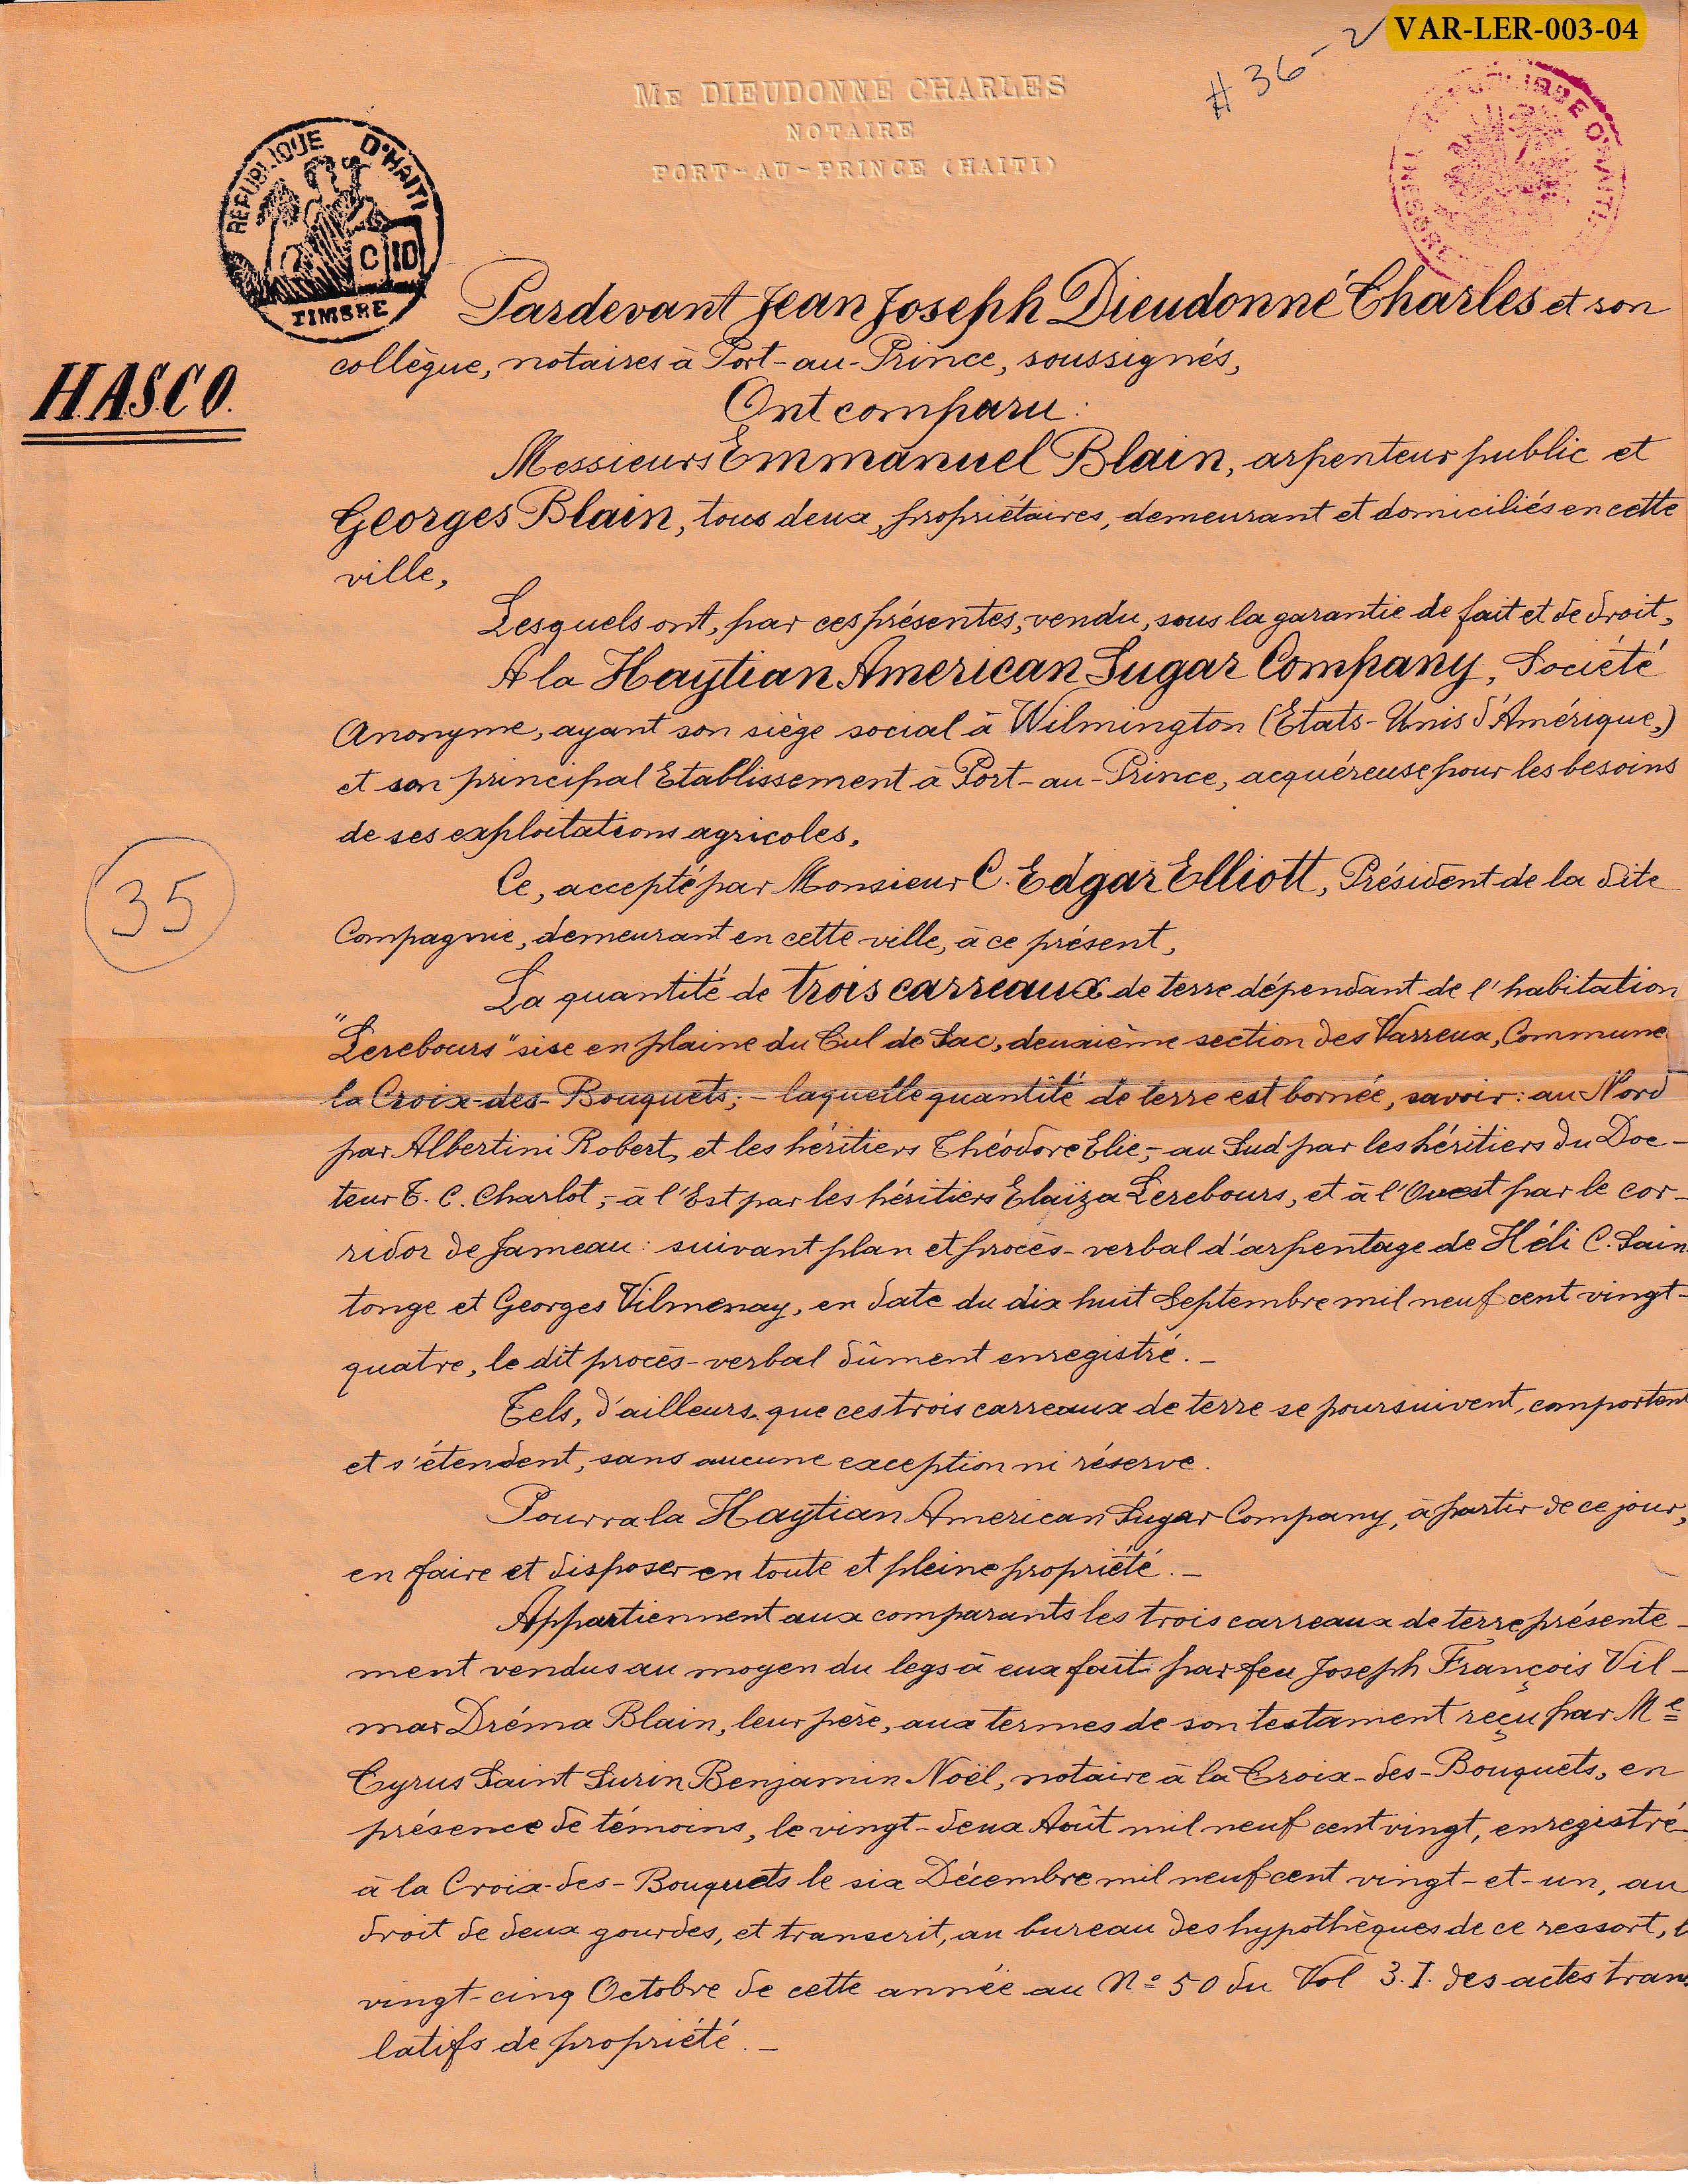 VAR-LER-003-04
# 36-2
ME DIEUDONNÉ CHARLES
NOTAIRE
PORT-AU-PRINCE (HAITI)
REPUBLIQUE D'HAITI
C 10
TIMBRE
REPUBLIQUE D'HAITI
HASCO.
Pardevant Jean Joseph Dieudonné Charles et son
collègue, notaires à Port-au-Prince, soussignés,
Ont comparu:
Messieurs Emmanuel Blain, arpenteur public et
Georges Blain, tous deux, propriétaires, demeurant et domiciliés en cette
ville,
Lesquels ont, par ces présentes, vendu, sous la garantie de fait et de droit,
A la Haytian American Sugar Company, Société
Anonyme, ayant son siège social à Wilmington (Etats-Unis d'Amérique,)
et son principal Etablissement à Port-au-Prince, acquéreuse pour les besoins
de ses exploitations agricoles,
Ce, accepté par Monsieur C. Edgar Elliott, Président de la dite
Compagnie, demeurant en cette ville, à ce présent,
35
La quantité de trois carreaux de terre dépendant de l'habitation
"Lerebours" sise en plaine du Cul de Sac, deuxième section des Varreux, Commune
la Croix-des-Bouquets; - laquelle quantité de terre est bornée, savoir: au Nord
par Albertini Robert, et les héritiers Théodore Elie; - au Sud par les héritiers du Doc-
teur T. C. Charlot; - à l'Est par les héritiers Elaïza Lerebours, et à l'Ouest par le cor-
ridor de Jameau: suivant plan et procès-verbal d'arpentage de Héli C. Sain
tonge et Georges Vilmenay, en date du dix huit Septembre mil neuf cent vingt-
quatre, le dit procès-verbal dûment enregistré. -
Tels, d'ailleurs, que ces trois carreaux de terre se poursuivent, comportent
et s'étendent, sans aucune exception ni réserve.
Pourra la Haytian American Sugar Company, à partir de ce jour,
en faire et disposer en toute et pleine propriété. -
Appartiennent aux comparants les trois carreaux de terre présente-
ment vendus au moyen du legs à eux fait par feu Joseph François Vil-
mar Dréma Blain, leur père, aux termes de son testament reçu par Me
Cyrus Saint Surin Benjamin Noël, notaire à la Croix-des-Bouquets, en
présence de témoins, le vingt-deux Août mil neuf cent vingt, enregistré
à la Croix-des-Bouquets le six Décembre mil neuf cent vingt-et-un, au
droit de deux gourdes, et transcrit, au bureau des hypothèques de ce ressort, l
vingt-cinq Octobre de cette année au No 50 du Vol 3. I. des actes trans
latifs de propriété. -